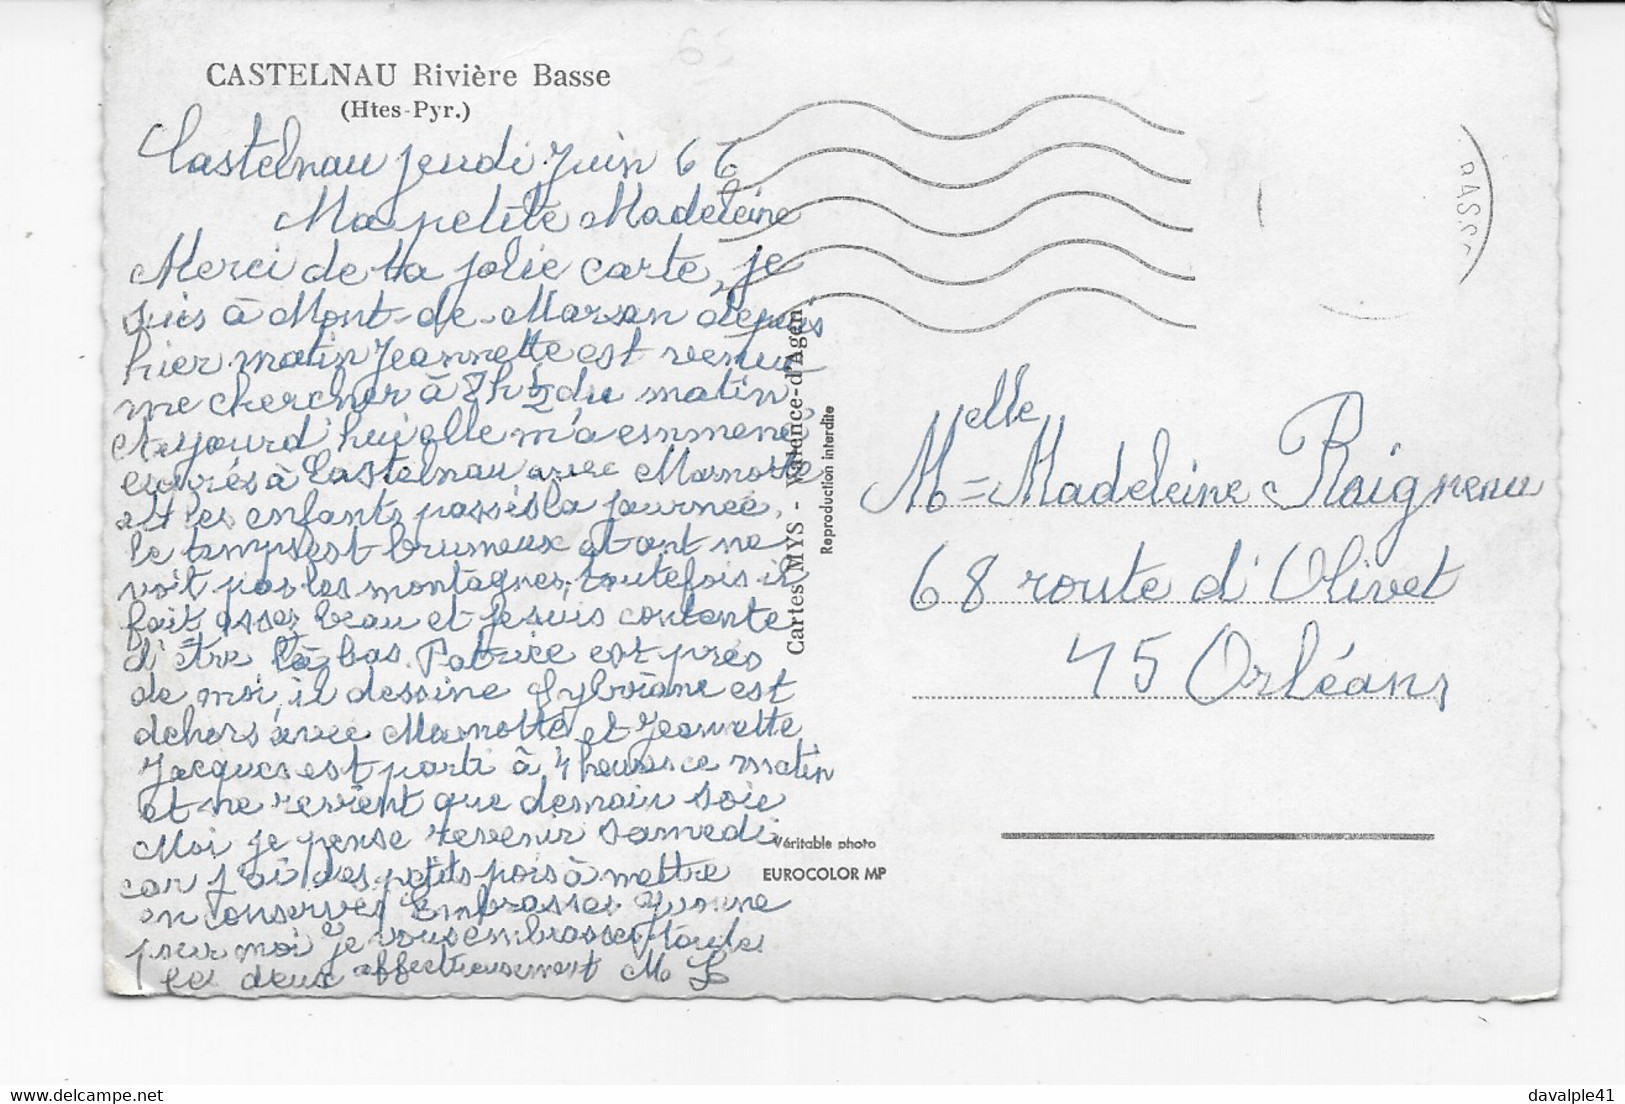 65
CASTELNAU Rivière Basse
(Htes-Pyr.)
Castelnau jeudi Juin 66
Ma petite Madeleine
Merci de ta jolie carte, je
suis à Mont-de-Marsan depuis
hier matin Jeannette est venue
me chercher à 8h ½ du matin
Aujourd'hui elle m'a emmené
à Castelnau avec Mamotte
et les enfants la journée,
le temps est brumeux et ont ne
voit pas les montagnes, toutefois il
fait assez beau et je suis contente
d'être là bas. Patrice est près
de moi, il dessine Sylviane est
dehors avec Mamotte et Jeannette
Jacques est parti à 4 heures ce matin
et ne revient que demain soir
Moi je pense revenir samedi
car j'ai des petits pois à mettre
en conserves Embrasses Yvonne
pour moi je vous embrasse toutes
les deux affectueusement M L
Cartes MYS - Valence-d'Agen
Reproduction interdite
Véritable photo
EUROCOLOR MP
BASSE
Melle = Madeleine Raigneau
68 route d'Olivet
45 Orléans
davalple41